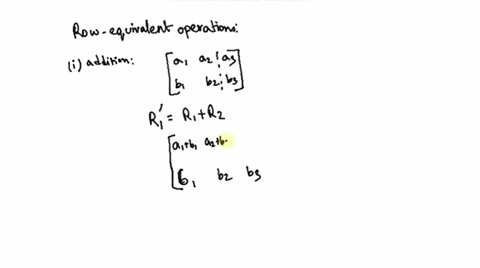 Row-equivalent operations:
(i) addition: [a₁ a₂ ¦ a₃]
[b₁ b₂ ¦ b₃]
R₁' = R₁+R₂
[a₁+b₁ a₂+b
b₁ b₂ b₃